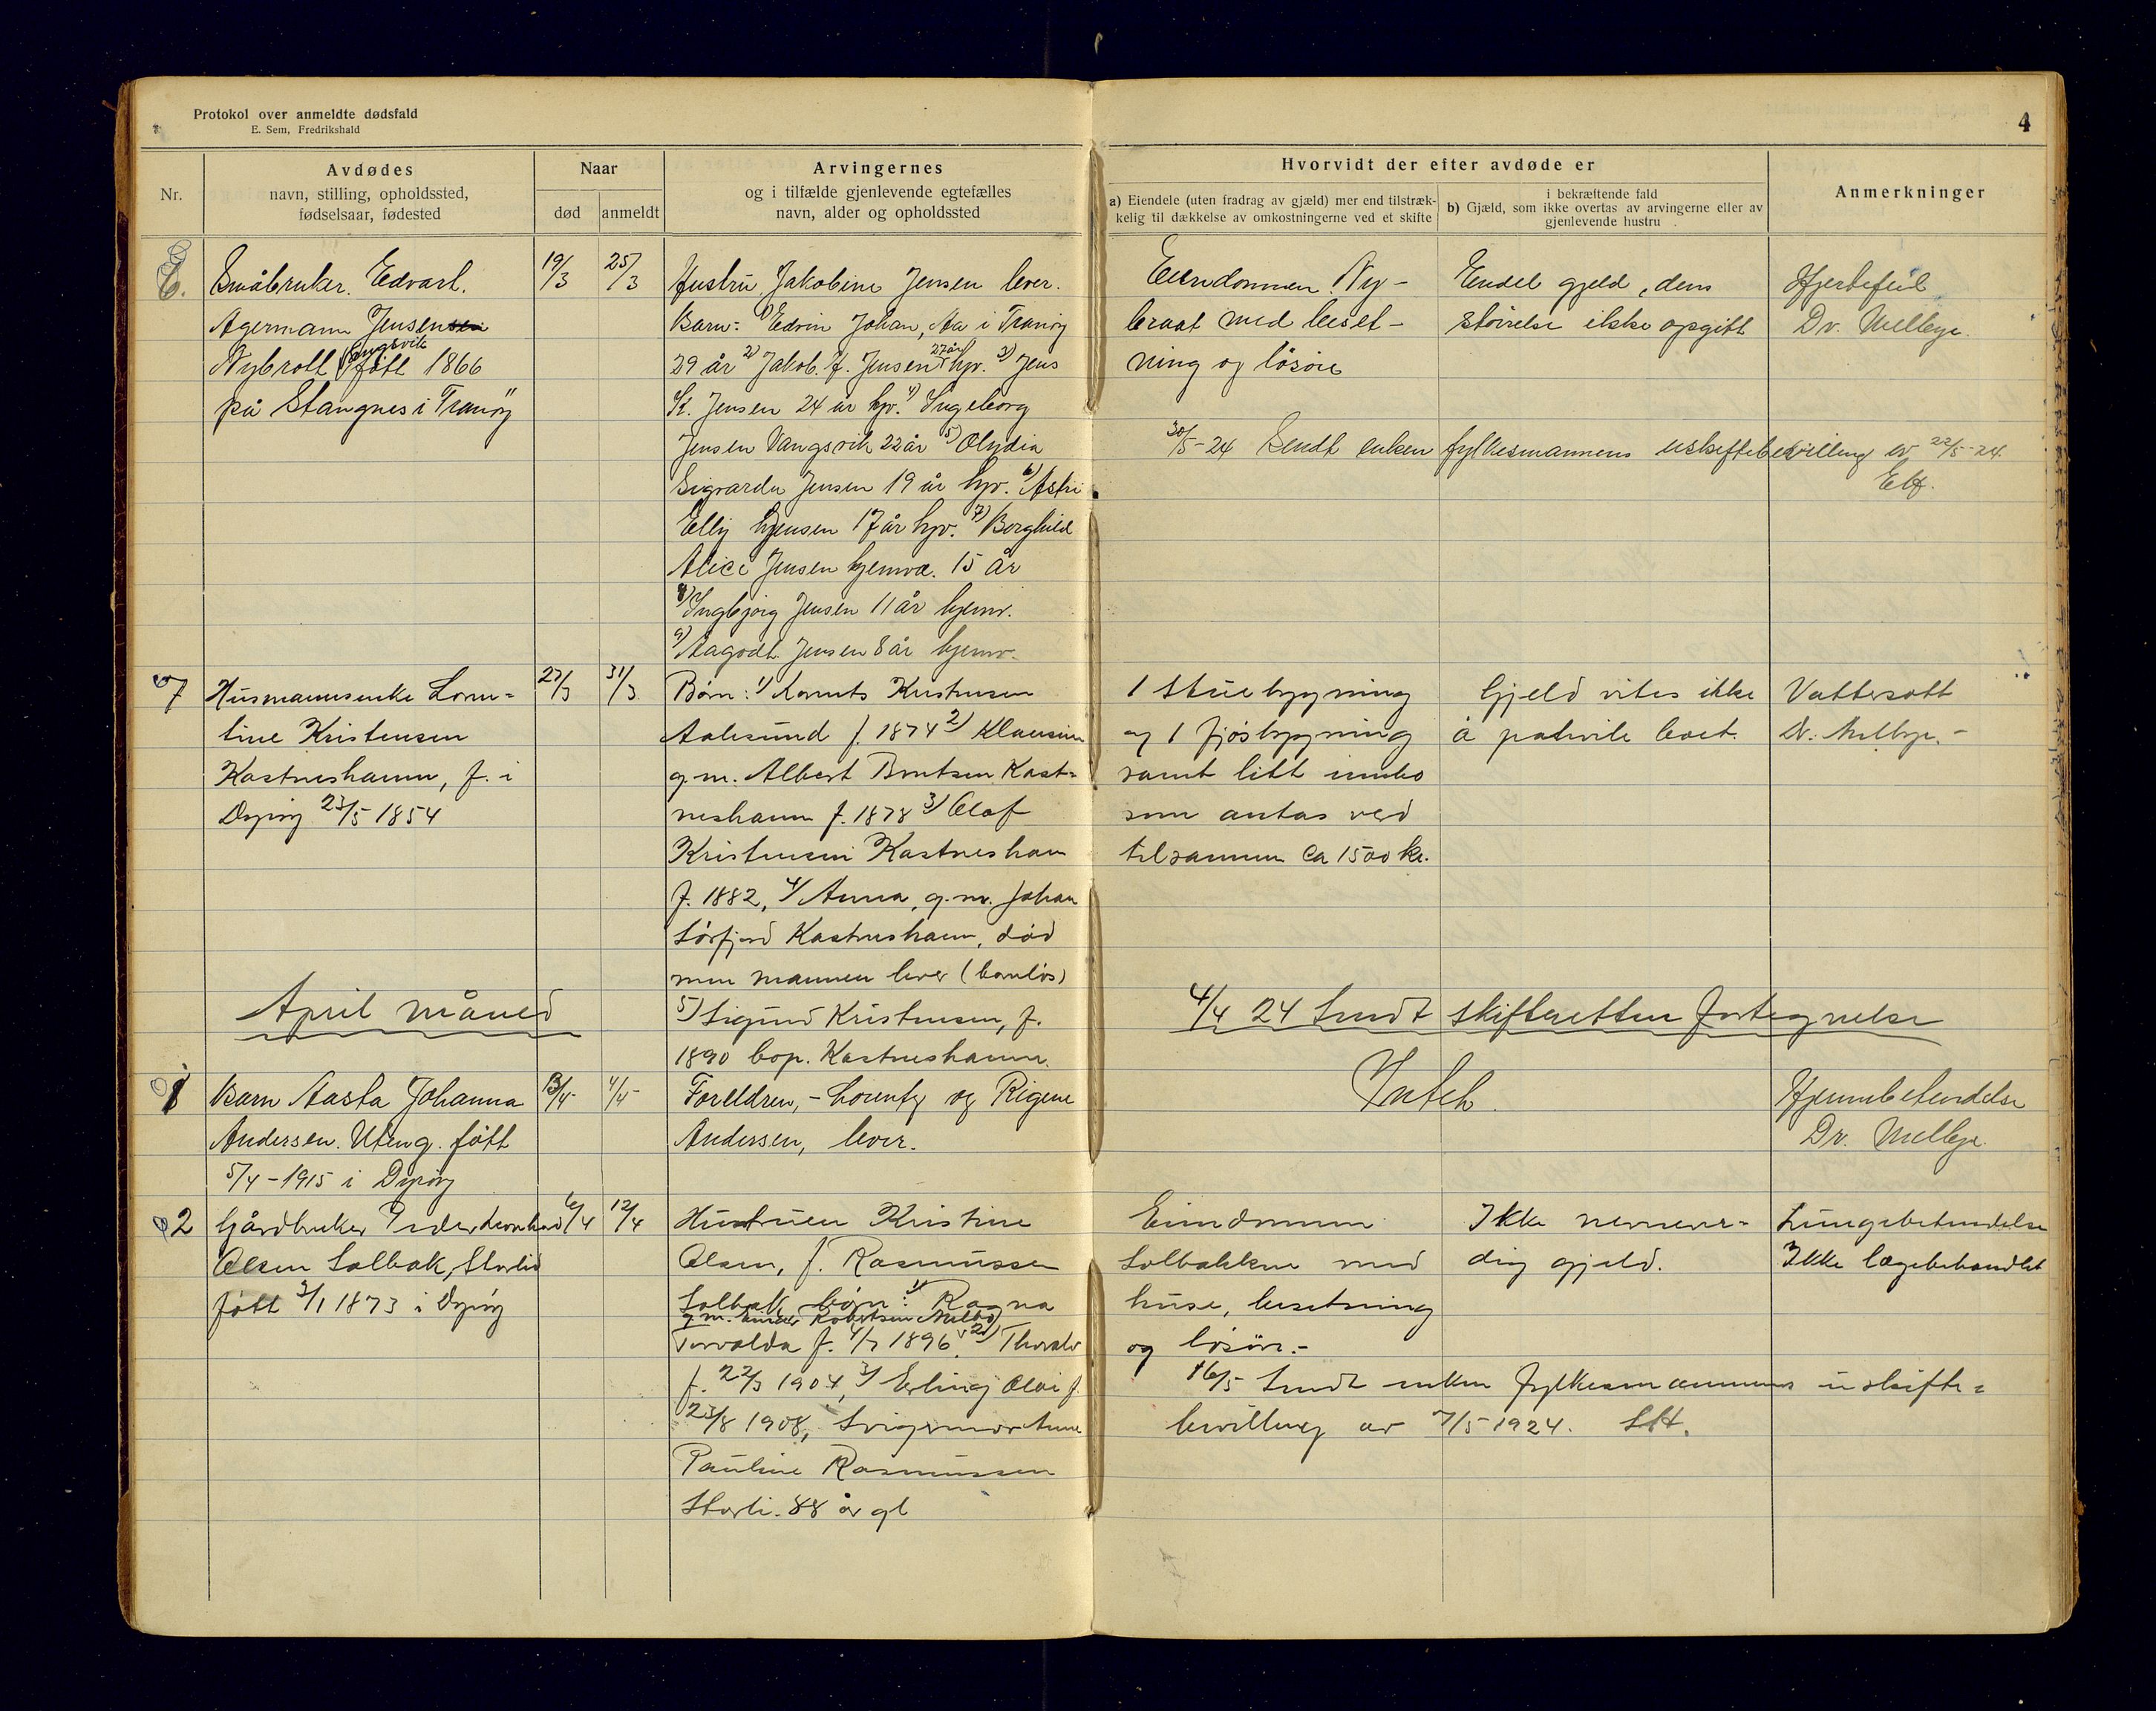 Protokol over anmeldte dødsfald
E. Sem, Fredrikshald
4
Nr.
Avdødes
navn, stilling, opholdssted,
fødselsaar, fødested
Naar
død
anmeldt
Arvingernes
og i tilfælde gjenlevende egtefælles
navn, alder og opholdssted
Hvorvidt der efter avdøde er
a) Eiendele (uten fradrag av gjæld) mer end tilstræk-
kelig til dækkelse av omkostningerne ved et skifte
i bekræftende fald
b) Gjæld, som ikke overtas av arvingerne eller av
gjenlevende hustru
Anmerkninger
6.
Småbruker. Edvart.
Agermann Jensen
Nybrott Vangsvik født 1866
på Stangnes i Tranöy
19/3
25/3
Hustru Jakobine Jensen lever.
Barn: 1) Edvin Johan, Aa i Tranöy
29 år 2) Jakob. H. Jensen 27 år hjv. 3) Jens
K. Jensen 24 år hjv. 4) Ingeborg
Jensen Vangsvik 22 år 5) Olydia
Sigvarda Jensen 19 år hjv. 6) Astri
Elly Jensen 17 år hjv. 7) Borghild
Alice Jensen hjemv. 15 år
8) Ingbjörg Jensen 11 år hjemv.
9) Aagodt Jensen 8 år hjemv.
Eiendommen Ny-
braat med beset-
ning og lösöre
Endel gjeld, dens
störrelse ikke opgitt
Hjertefeil
Dr. Melbye.
30/5-24 Sendt enken fylkesmannens uskiftebevilling av 22/5-24.
7
Husmannsenke Loren-
tine Kristensen
Kastneshamn, f. i
Dyröy 23/5 1854
27/3
31/3
Børn: 1) Kornets Kristensen
Aalesund f. 1874 2) Klausine
g.m. Albert Bentsen Kast-
neshamn f. 1878 3) Olaf
Kristensen Kastnesham
f. 1882, 4) Anna, g.m. Johan
Sörfjord Kastneshamn, död
men mannen lever (barnlös)
5) Sigurd Kristensen, f.
1890 bop. Kastneshamn.
1 stuebygning
og 1 fjösbygning
samt litt innbo
som antas verd
tilsammen Ca 1500 kr.
Gjeld vites ikke
å påhvile boet.
Vattersott
Dr. Melbye.-
April måned
4/4 24 Sendt skifteretten fortegnelse
1
Barn Aasta Johanna
Andersen. Uteng. født
5/4-1915 i Dyröy
4/4
Foreldren, - Lorentz og Regine
Andersen, lever.
Intet.
Hjernebetendelse
Dr. Melbye.
2
Gårdbruker Peder Leonhard
Olsen Solbak, Storli
født 3/1 1873 i Dyröy
6/4
12/4
Hustruen Kristine
Olsen, f. Rasmussen
Solbak børn: 1) Ragna
g.m. Robertsen
Torvalda f. 4/7 1896, 2) Thoralv
f. 22/3 1904, 3) Erling Olai f.
23/8 1908, Svigermor Anne
Pauline Rasmussen
Storli. 88 år gl
Eiendommen
Solbakken med
huse, besetning
og lösöre.-
Ikke nevnever-
dig gjeld.
Lungebetendelse
Ikke lægebehandlet
16/5 Sendt enken fylkesmannens uskifte-
bevilling av 7/5 1924.